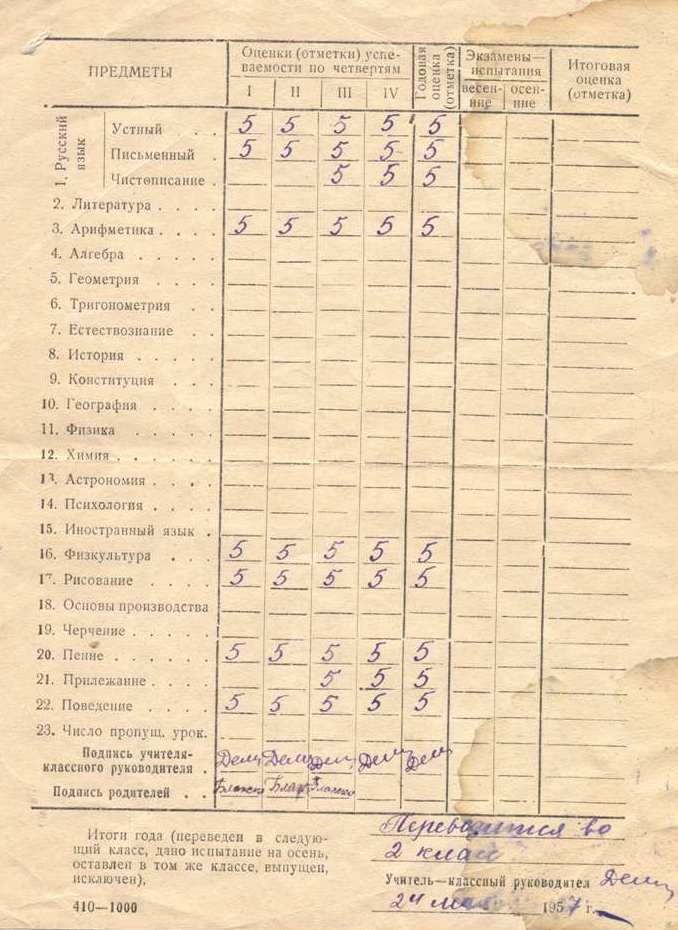 ПРЕДМЕТЫ
Оценки (отметки) успеваемости по четвертям
I II III IV
Годовая оценка (отметка)
Экзамены—испытания
весенние осенние
Итоговая оценка (отметка)
1. Русский язык
Устный . . 5 5 5 5 5
Письменный . 5 5 5 5 5
Чистописание . 5 5 5
2. Литература . . . .
3. Арифметика . . . . 5 5 5 5 5
4. Алгебра . . . . .
5. Геометрия . . . .
6. Тригонометрия . .
7. Естествознание . .
8. История . . . . .
9. Конституция . . .
10. География . . . .
11. Физика . . . . .
12. Химия . . . . . .
13. Астрономия . . . .
14. Психология . . . .
15. Иностранный язык .
16. Физкультура . . . 5 5 5 5 5
17. Рисование . . . . 5 5 5 5 5
18. Основы производства
19. Черчение . . . . .
20. Пение . . . . . . 5 5 5 5 5
21. Прилежание . . . . 5 5 5
22. Поведение . . . . 5 5 5 5 5
23. Число пропущ. урок.
Подпись учителя-
классного руководителя .
Подпись родителей . .
Итоги года (переведен в следую-
щий класс, дано испытание на осень,
оставлен в том же классе, выпущен,
исключен).
Переводится во
2 класс
Учитель—классный руководител
24 мая 1957 г.
410—1000